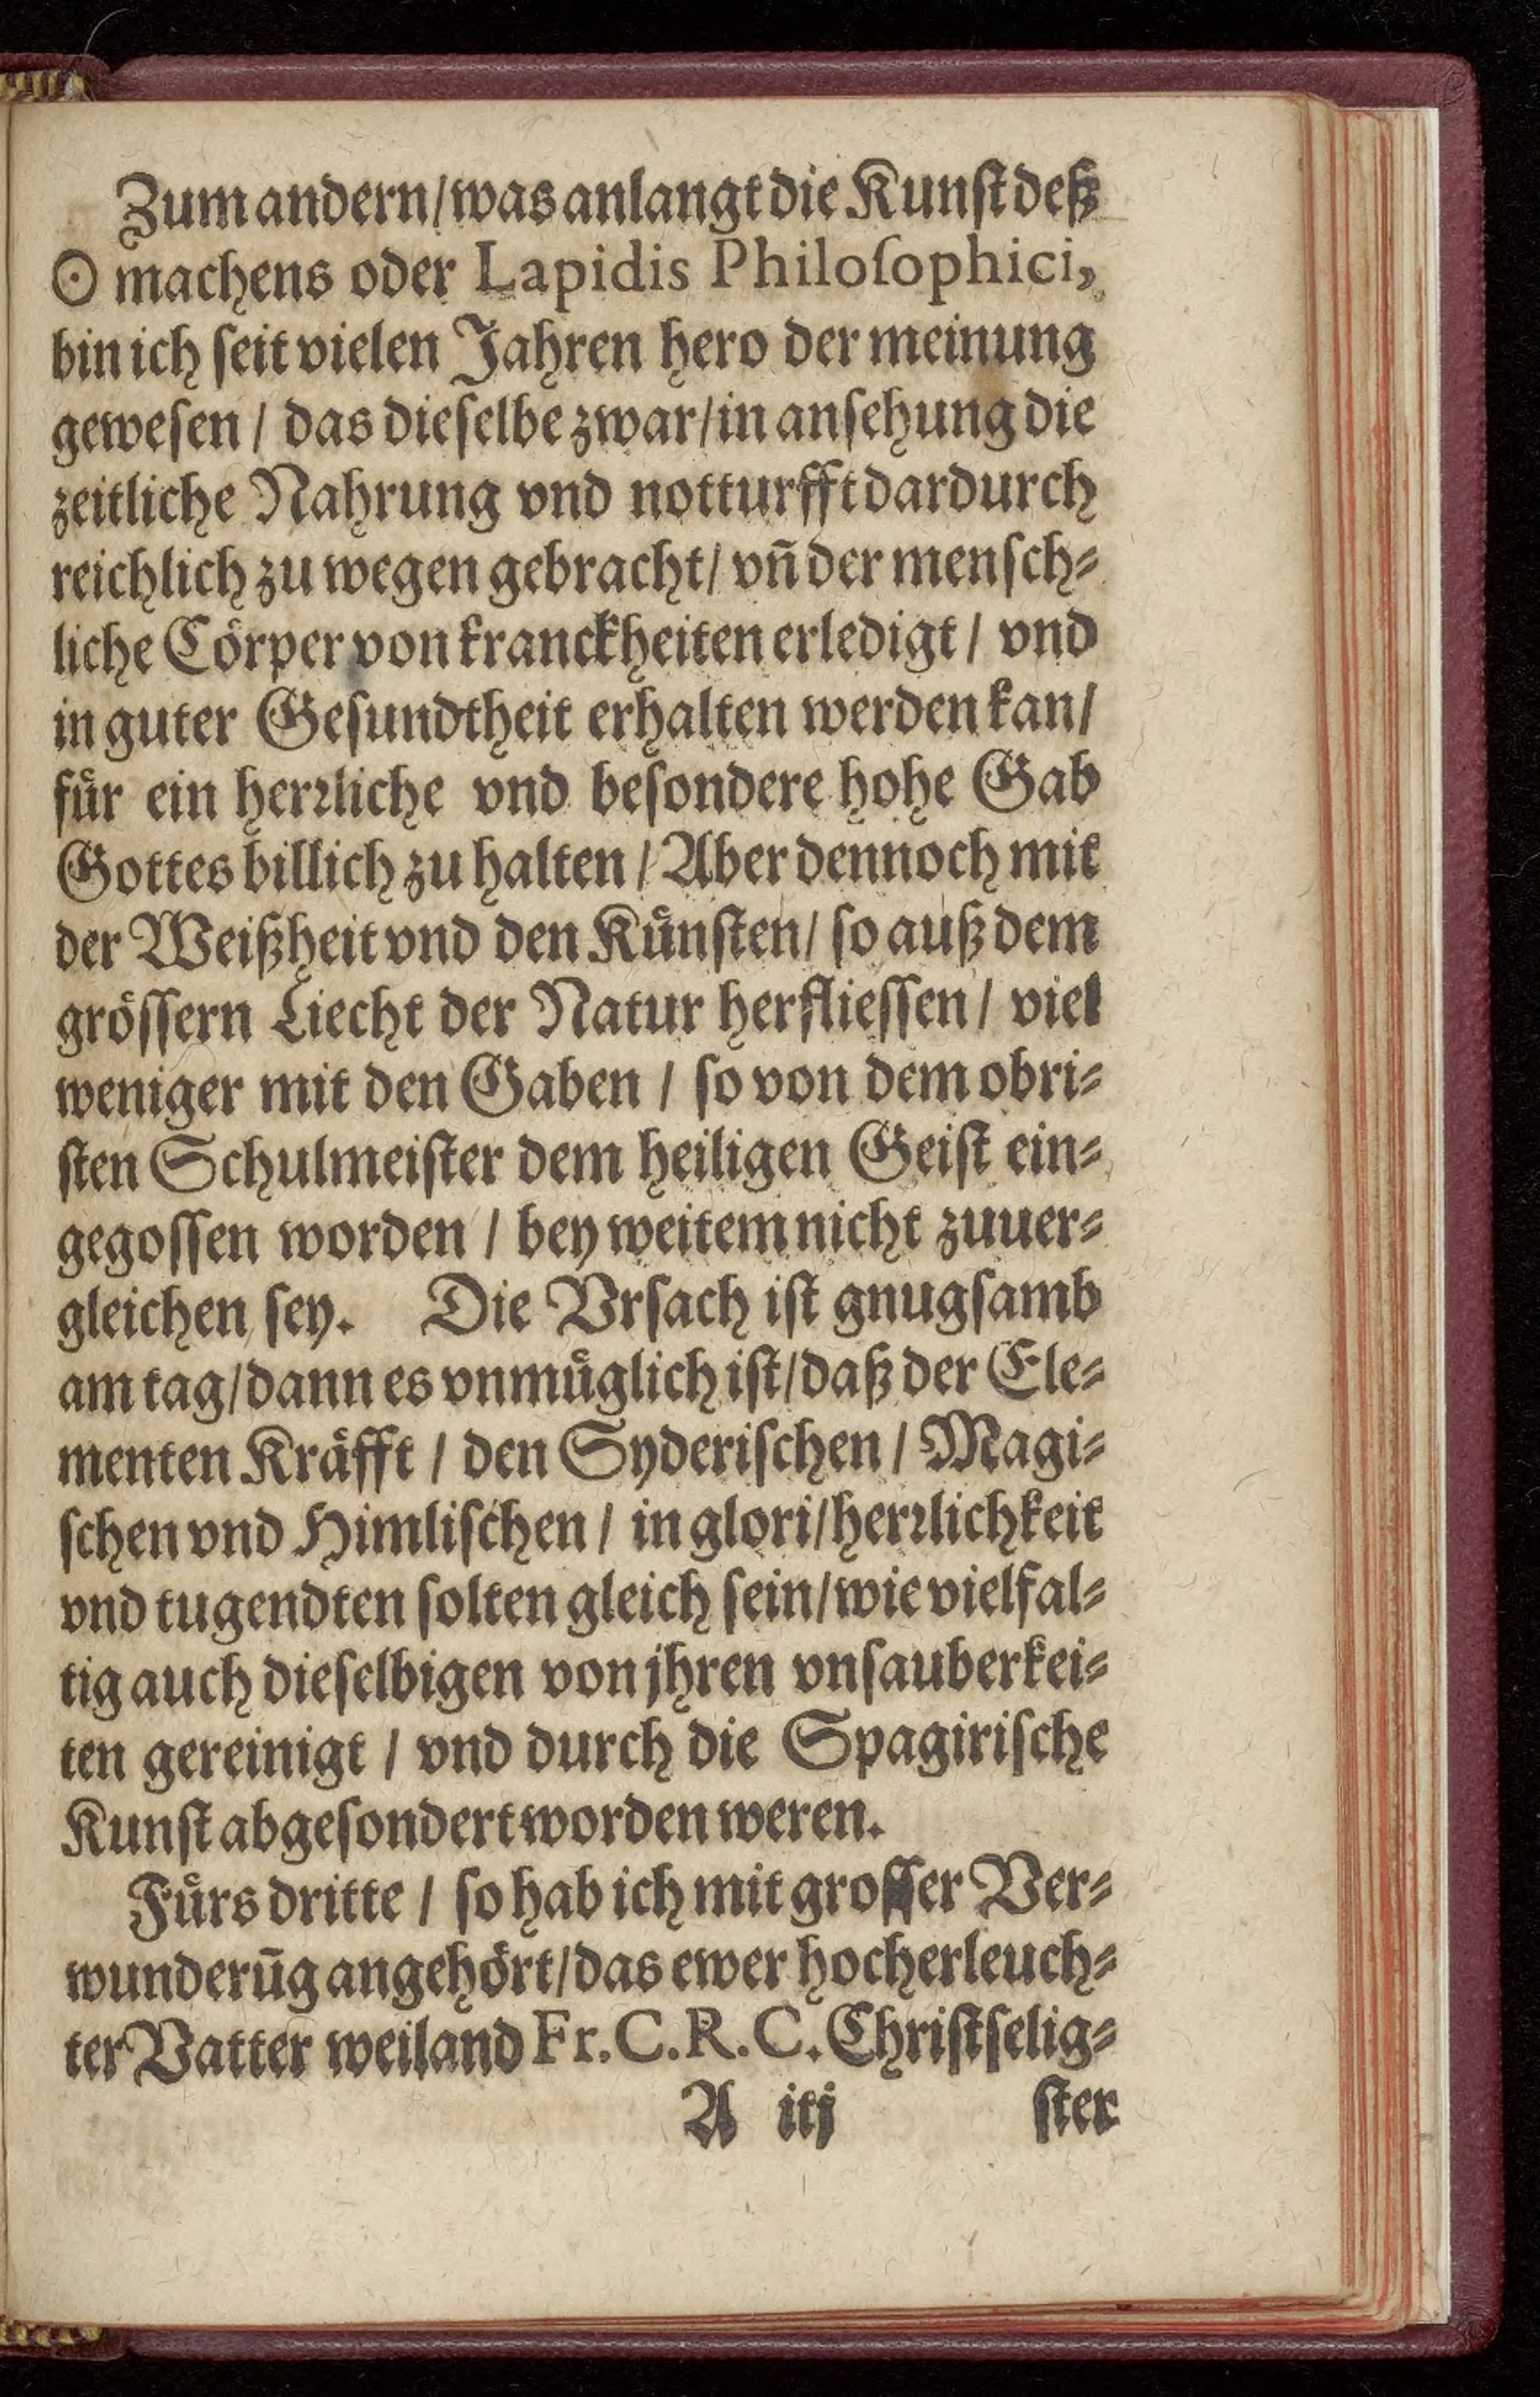 Zum andern/was anlangt die Kunſt deß
☉ machens oder Lapidis Philoſophici,
bin ich ſeit vielen Jahren hero der meinung
geweſen / das dieſelbe zwar/in anſehung die
zeitliche Nahrung vnd notturfft dardurch
reichlich zu wegen gebracht/ vñ der menſch⸗
liche Cörper von kranckheiten erledigt / vnd
in guter Geſundtheit erhalten werden kan/
fuͤr ein herꝛliche vnd beſondere hohe Gab
Gottes billich zu halten / Aber dennoch mit
der Weißheit vnd den Kuͤnſten/ ſo auß dem
groͤſſern Liecht der Natur herflieſſen / viel
weniger mit den Gaben / ſo von dem obri⸗
ſten Schulmeiſter dem heiligen Geiſt ein⸗
gegoſſen worden / bey weitem nicht zuuer⸗
gleichen ſey. Die Vrſach iſt gnugſamb
am tag/dann es vnmuͤglich iſt/daß der Ele⸗
menten Kraͤfft / den Syderiſchen / Magi⸗
ſchen vnd Himliſchen / in glori/herꝛlichkeit
vnd tugendten ſolten gleich ſein/wie vielfal⸗
tig auch dieſelbigen von jhren vnſauberkei⸗
ten gereinigt / vnd durch die Spagiriſche
Kunſt abgeſondert worden weren.
Fuͤrs dritte / ſo hab ich mit groſſer Ver⸗
wunderūg angehoͤrt/das ewer hocherleuch⸗
ter Vatter weiland Fr. C. R. C. Chriſtſelig⸗
A iij ſter